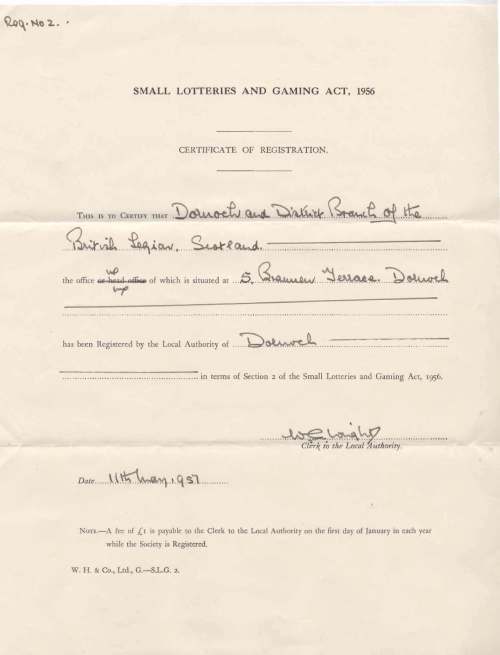 Reg. No 2.
SMALL LOTTERIES AND GAMING ACT, 1956
CERTIFICATE OF REGISTRATION.
THIS IS TO CERTIFY THAT Dornoch and District Branch of the
British Legion, Scotland.
the office or head office of which is situated at 5, Terrace, Dornoch
has been Registered by the Local Authority of Dornoch
in terms of Section 2 of the Small Lotteries and Gaming Act, 1956.
Clerk to the Local Authority.
Date 11th May, 1957
NOTE.—A fee of £1 is payable to the Clerk to the Local Authority on the first day of January in each year
while the Society is Registered.
W. H. & Co., Ltd., G.—S.L.G. 2.